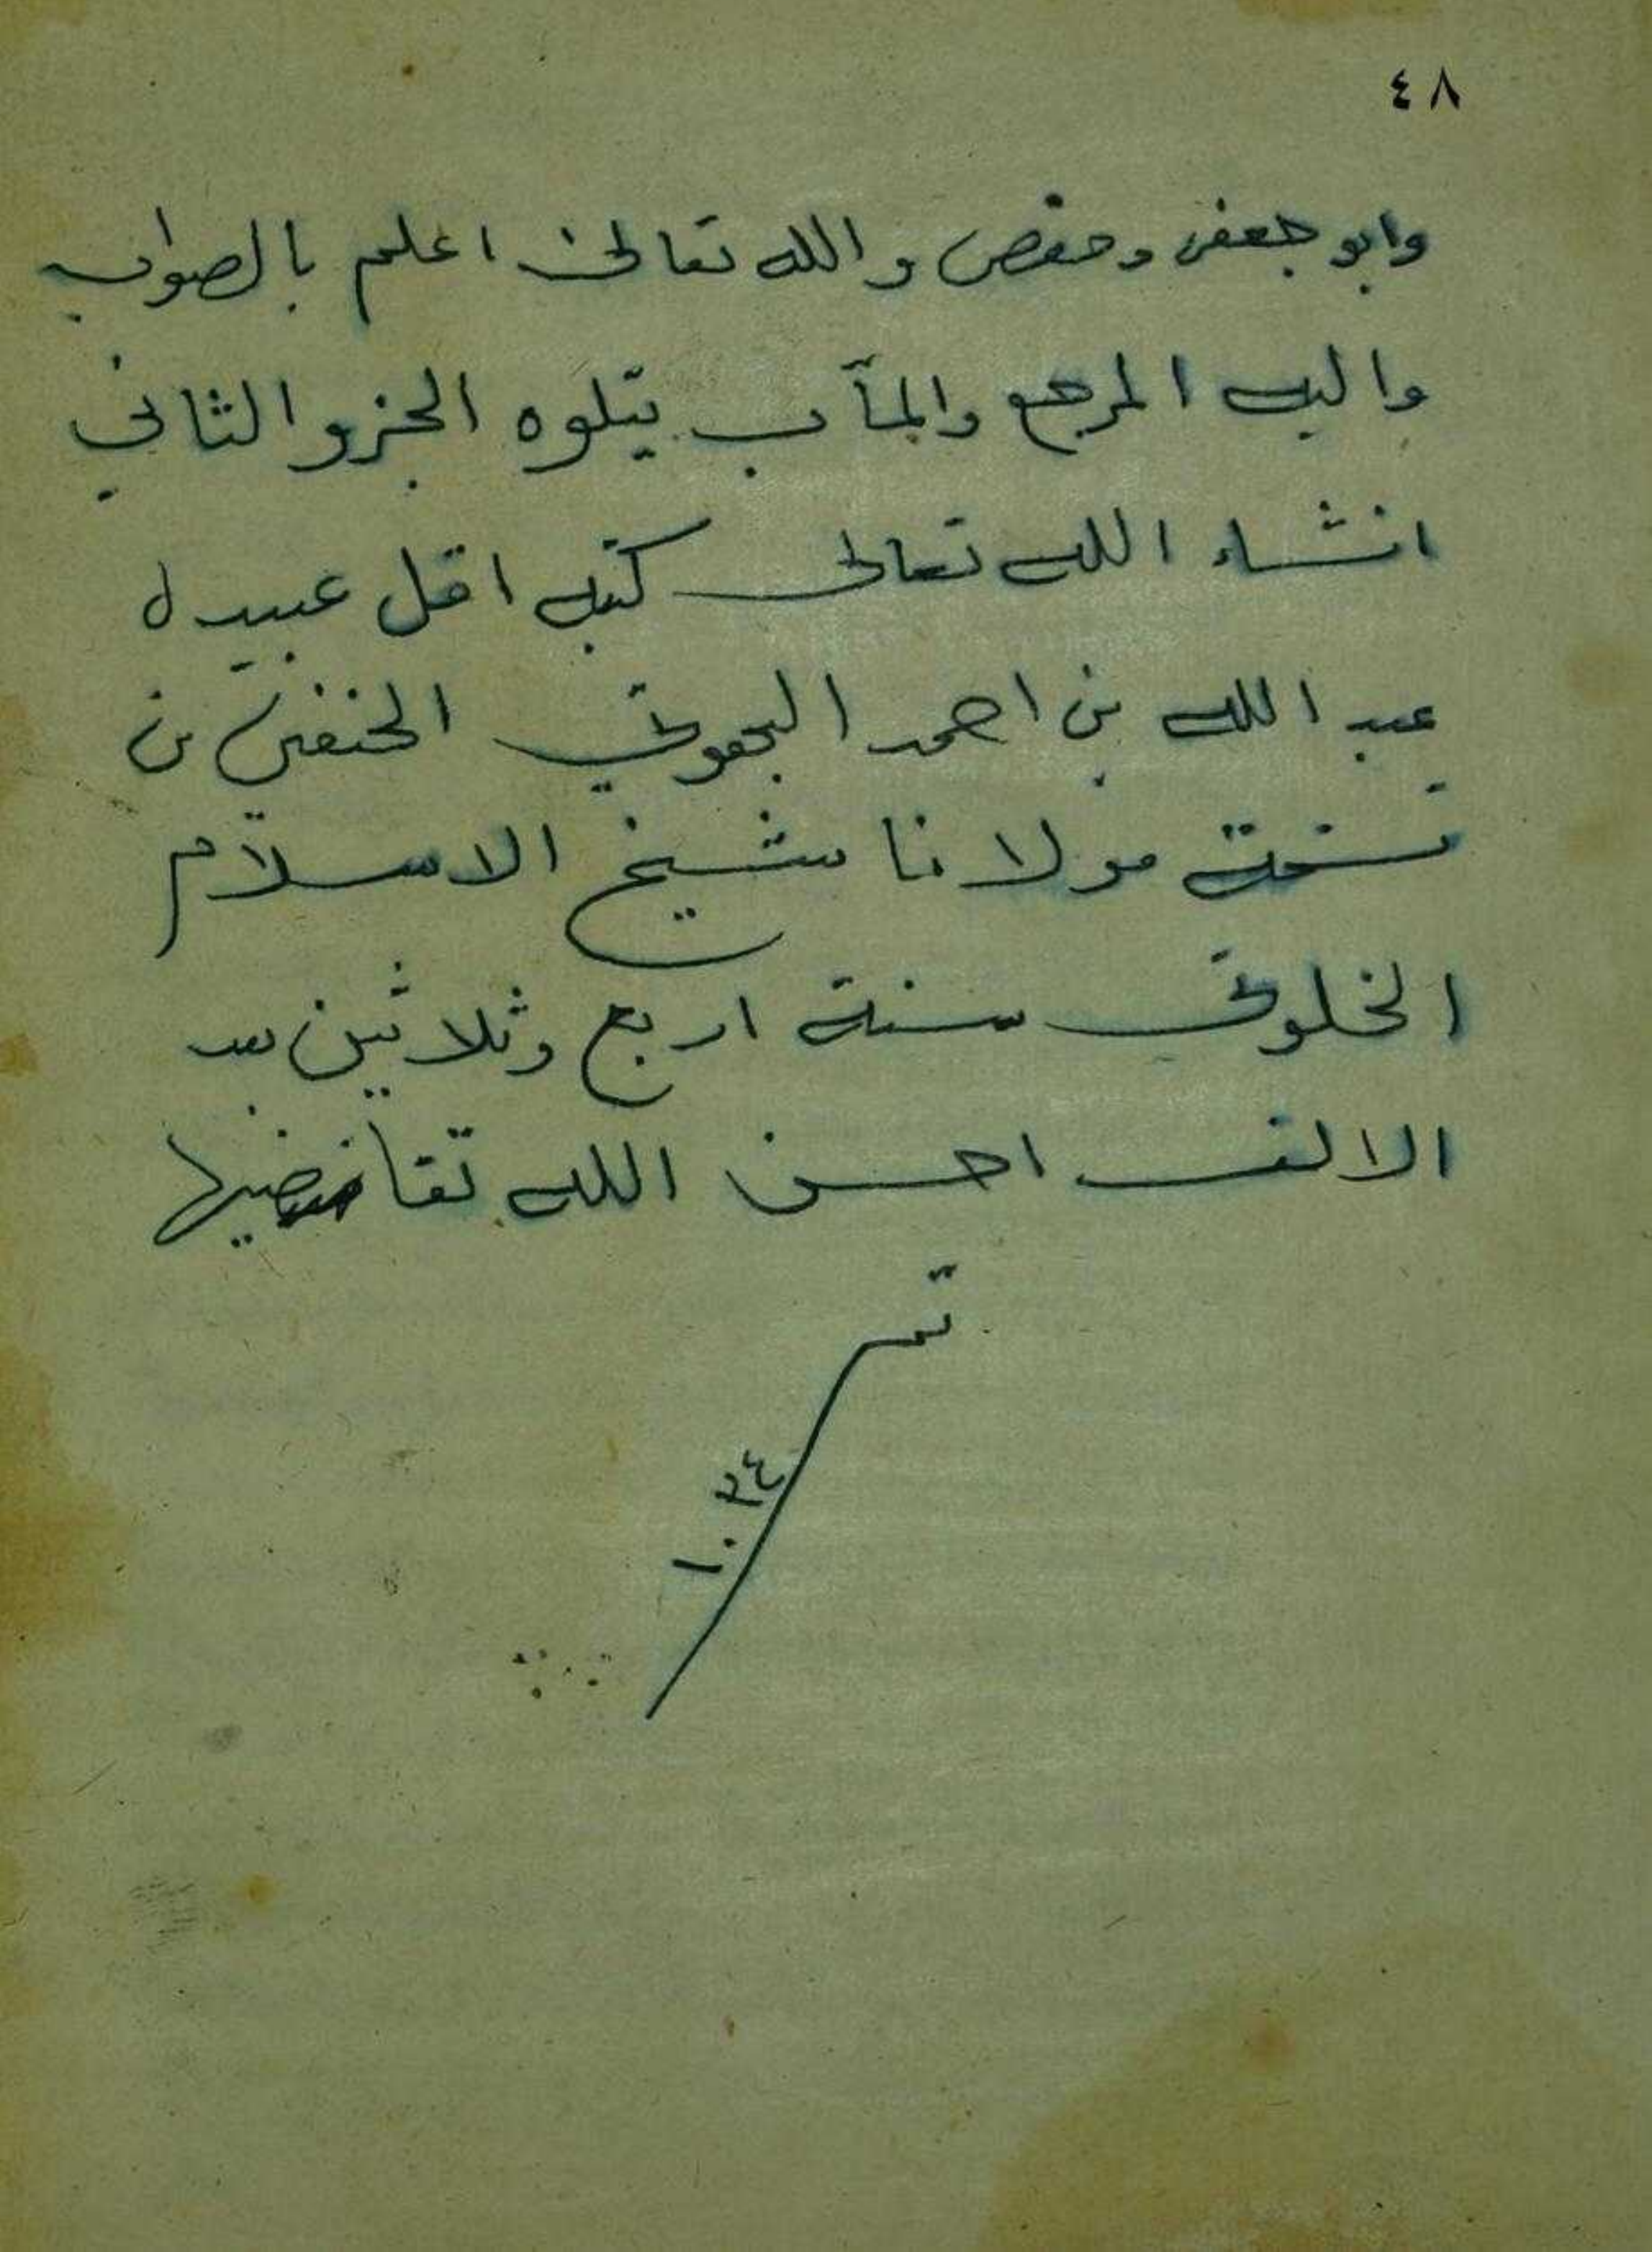 ٤٨
وابو جعفر وحفص والله تعالى اعلم بالصواب
واليه المرجع والمآب يتلوه الجزو الثاني
انشاء الله تعالى كتبه اقل عبيده
عبد الله بن احمد الحنفي من
نسخة مولانا شيخ الاسلام
الخلوتي سنة اربع وثلاثين بعد
الالف احسن الله تقاضيها
تمـ
١٠٣٤